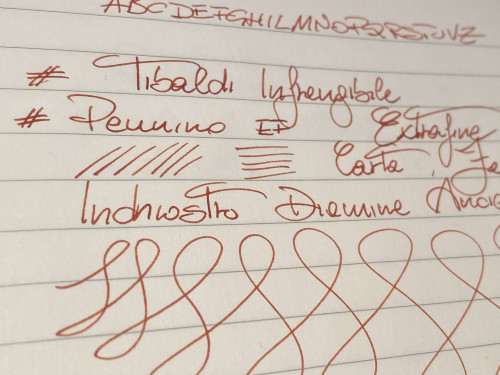 ABCDEFGHILMNOPQRSTUVZ
# Tibaldi Infrangibile
# Pennino EF Extrafine
Carta
Inchiostro Diamine Ancie